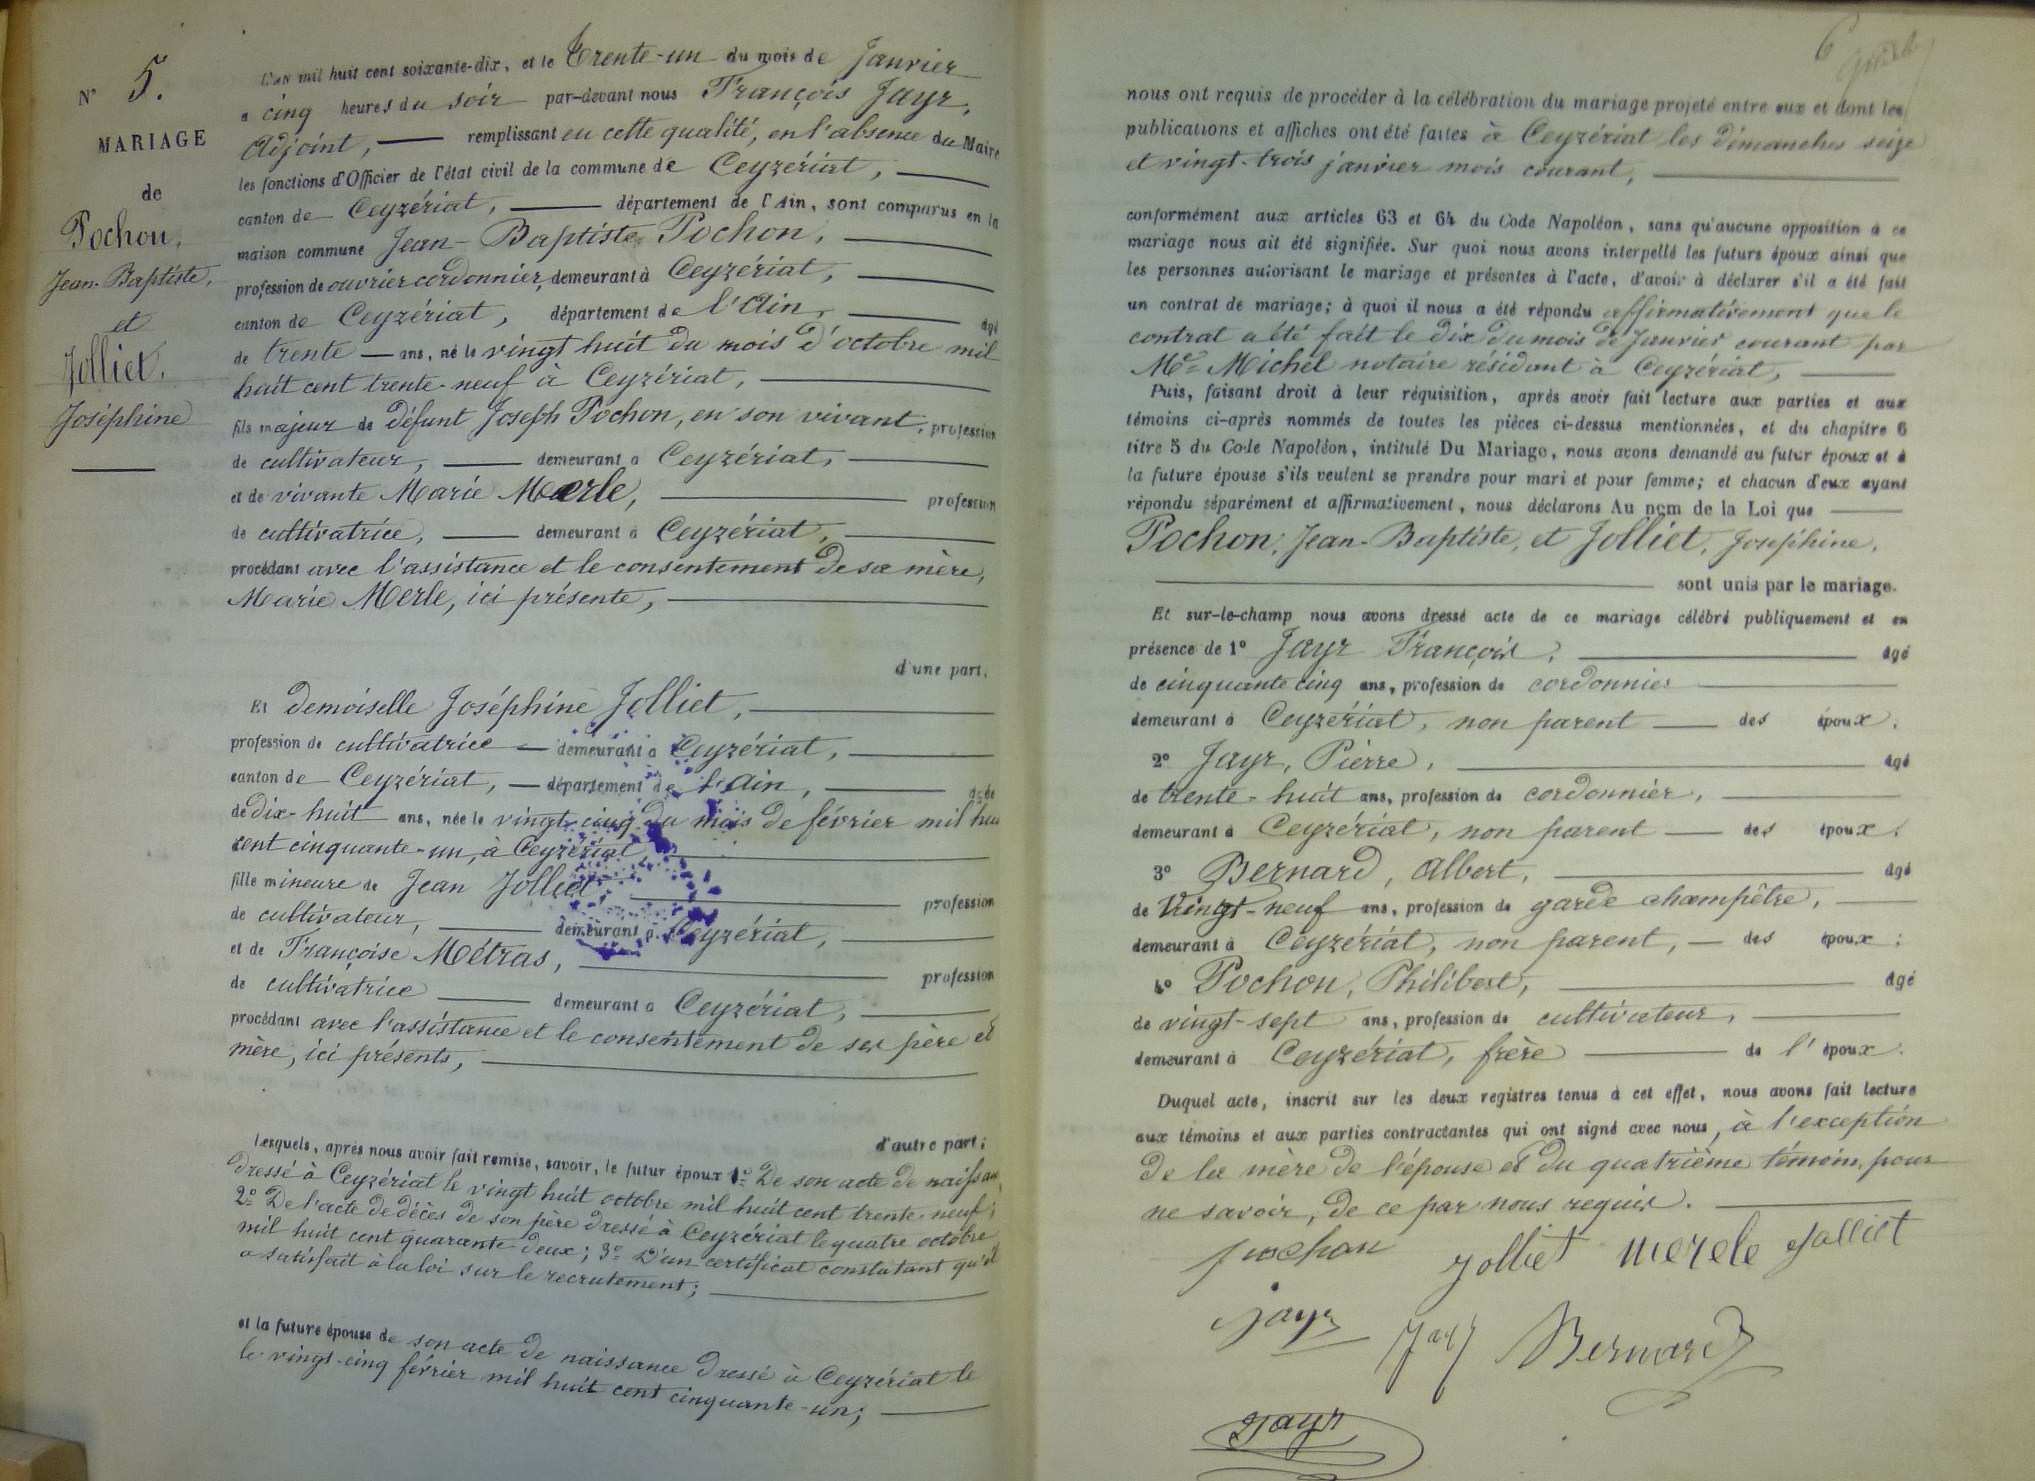 N° 5.
MARIAGE
de
Pochon,
Jean-Baptiste,
et
Jolliet,
Joséphine
L'an mil huit cent soixante-dix, et le Trente-un du mois de Janvier
a cinq heures du soir par-devant nous François Jayr,
Adjoint, remplissant en cette qualité, en l'absence du Maire
les fonctions d'Officier de l'état civil de la commune de Ceyzériat,
canton de Ceyzériat, département de l'Ain, sont comparus en la
maison commune Jean-Baptiste Pochon,
profession de ouvrier cordonnier, demeurant à Ceyzériat,
canton de Ceyzériat, département de l'Ain, agé
de trente ans, né le vingt huit du mois d'octobre mil
huit cent trente-neuf à Ceyzériat,
fils majeur de défunt Joseph Pochon, en son vivant, profession
de cultivateur, demeurant a Ceyzériat,
et de vivante Marie Merle, profession
de cultivatrice, demeurant à Ceyzériat,
procédant avec l'assistance et le consentement de sa mère,
Marie Merle, ici présente,
d'une part.
Et demoiselle Joséphine Jolliet,
profession de cultivatrice demeurant a Ceyzériat,
canton de Ceyzériat, département de l'Ain, agée
de dix-huit ans, née le vingt-cinq du mois de février mil huit
cent cinquante-un, à Ceyzériat
fille mineure de Jean Jolliet profession
de cultivateur, demeurant a Ceyzériat,
et de Françoise Métras, profession
de cultivatrice demeurant a Ceyzériat,
procédant avec l'assistance et le consentement de ses père et
mère, ici présents,
d'autre part;
Lesquels, après nous avoir fait remise, savoir, le futur époux 1° De son acte de naissance
dressé à Ceyzériat le vingt huit octobre mil huit cent trente-neuf;
2° De l'acte de décès de son père dressé à Ceyzériat le quatre octobre
mil huit cent quarante deux; 3° D'un certificat constatant qu'il
a satisfait à la loi sur le recrutement;
et la future épouse de son acte de naissance dressé à Ceyzériat le
le vingt-cinq février mil huit cent cinquante-un;
6
nous ont requis de procéder à la célébration du mariage projeté entre eux et dont les
publications et affiches ont été faites à Ceyzériat les dimanches seize
et vingt-trois janvier mois courant,
conformément aux articles 63 et 64 du Code Napoléon, sans qu'aucune opposition à ce
mariage nous ait été signifiée. Sur quoi nous avons interpellé les futurs époux ainsi que
les personnes autorisant le mariage et présentes à l'acte, d'avoir à déclarer s'il a été fait
un contrat de mariage; à quoi il nous a été répondu affirmativement que le
contrat a été fait le dix du mois de Janvier courant par
Me Michel notaire résidant à Ceyzériat,
Puis, faisant droit à leur réquisition, après avoir fait lecture aux parties et aux
témoins ci-après nommés de toutes les pièces ci-dessus mentionnées, et du chapitre 6
titre 5 du Code Napoléon, intitulé Du Mariage, nous avons demandé au futur époux et à
la future épouse s'ils veulent se prendre pour mari et pour femme; et chacun d'eux ayant
répondu séparément et affirmativement, nous déclarons Au nom de la Loi que
Pochon, Jean-Baptiste, et Jolliet, Joséphine,
sont unis par le mariage.
Et sur-le-champ nous avons dressé acte de ce mariage célébré publiquement et en
présence de 1° Jayr François, agé
de cinquante cinq ans, profession de cordonnier
demeurant à Ceyzériat, non parent des époux.
2° Jayr, Pierre, agé
de trente-huit ans, profession de cordonnier,
demeurant à Ceyzériat, non parent des époux.
3° Bernard, Albert, agé
de Vingt-neuf ans, profession de garde champêtre,
demeurant à Ceyzériat, non parent, des époux;
4° Pochon, Philibert, agé
de vingt-sept ans, profession de cultivateur,
demeurant à Ceyzériat, frère de l'époux.
Duquel acte, inscrit sur les deux registres tenus à cet effet, nous avons fait lecture
aux témoins et aux parties contractantes qui ont signé avec nous, à l'exception
de la mère de l'épouse et du quatrième témoin, pour
ne savoir, de ce par nous requis.
pochon jolliet merele Jolliet
jayr Jayr Bernard
Jayr